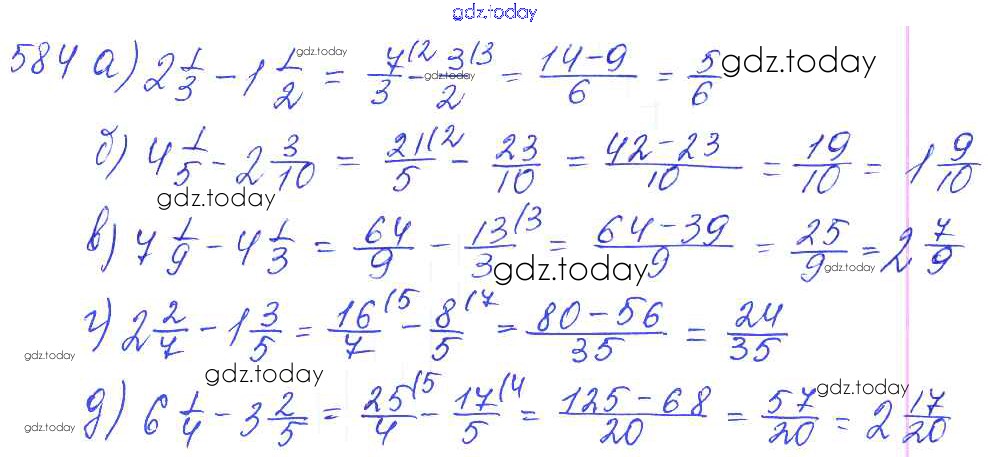 gdz.today
584 а) 2 1/3 − 1 1/2 = 7/3 (2 − 3/2 (3 = (14−9)/6 = 5/6 gdz.today gdz.today gdz.today
б) 4 1/5 − 2 3/10 = 21/5 (2 − 23/10 = (42−23)/10 = 19/10 = 1 9/10
gdz.today
в) 7 1/9 − 4 1/3 = 64/9 − 13/3 (3 = (64−39)/9 = 25/9 = 2 7/9
gdz.today gdz.today
г) 2 2/7 − 1 3/5 = 16/7 (5 − 8/5 (7 = (80−56)/35 = 24/35
gdz.today gdz.today gdz.today
д) 6 1/4 − 3 2/5 = 25/4 (5 − 17/5 (4 = (125−68)/20 = 57/20 = 2 17/20
gdz.today